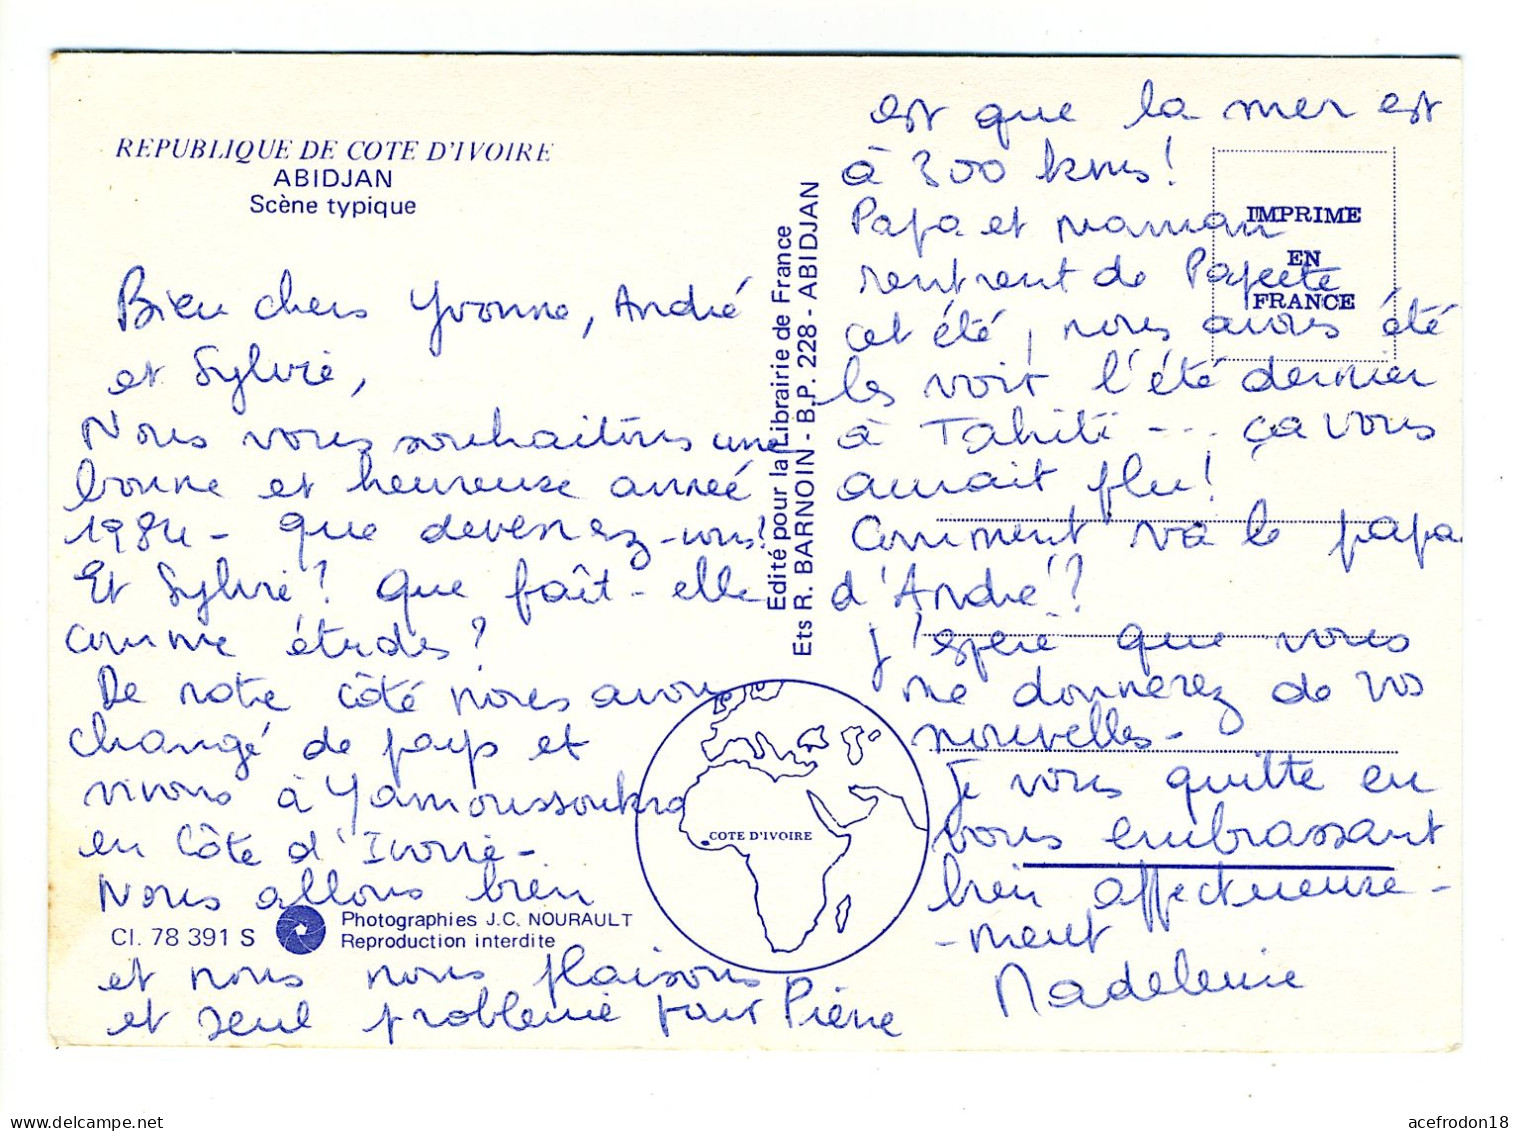 REPUBLIQUE DE COTE D'IVOIRE
ABIDJAN
Scène typique
Bien chers Yvonne, André
et Sylvie,
Nous vous souhaitons une
bonne et heureuse année
1984 - que devenez-vous!
Et Sylvie? que fait-elle
comme études?
De notre côté nous avons
changé de pays et
vivons à Yamoussoukro
en Côte d'Ivoire -
Nous allons bien
et nous nous plaisons
et seul problème pour Pierre
est que la mer est
à 300 kms!
Papa et maman
rentrent de Papeete
cet été, nous avons été
les voir l'été dernier
à Tahiti --- ça vous
aurait plu!
Comment va le papa
d'André?
J'espère que vous
me donnerez de vos
nouvelles -
Je vous quitte en
vous embrassant
bien affectueuse-
-ment
Madeleine
Edité pour la Librairie de France
Ets R. BARNOIN - B.P. 228 - ABIDJAN
IMPRIME
EN
FRANCE
COTE D'IVOIRE
CI. 78 391 S
Photographies J.C. NOURAULT
Reproduction interdite
delcampe.net
acefrodon18